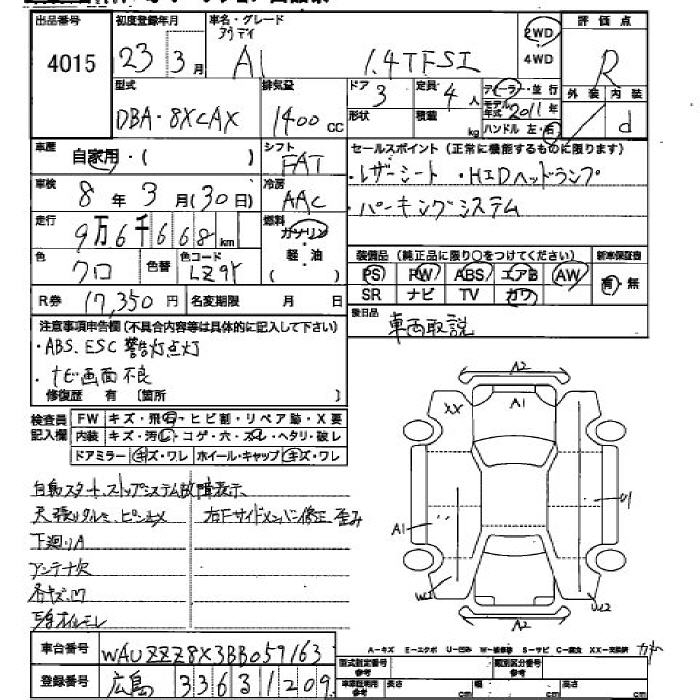 出品番号 初度登録年月 車名・グレード 評価点
4015 23年 3月 アウディ A1 1.4TFSI 2WD・4WD R
型式 排気量 ドア 定員 ディーラー・並行 外装 内装
DBA・8XCAX 1400cc 3 4人 モデル年式 2011年 d
形状 積載 kg ハンドル 左・右
車歴 自家用・( ) シフト FAT
セールスポイント(正常に機能するものに限ります)
・レザーシート ・HIDヘッドランプ
・パーキングシステム
車検 8年 3月(30日) 冷房 AAC
走行 9万6千668km 燃料 ガソリン
軽・油
( )
色 クロ 色替 色コード LZ9Y
装備品(純正品に限り○をつけてください) 新車保証書
PS PW ABS エアB AW 有・無
SR ナビ TV カワ
R券 17,350円 名変期限 月 日
後日品 車両取説
注意事項申告欄(不具合内容等は具体的に記入して下さい)
・ABS、ESC 警告灯点灯
・ナビ画面不良
修復歴 有 〔箇所 〕
検査員記入欄 FW キズ・飛石・ヒビ割・リペア跡・X要
内装 キズ・汚レ・コゲ・穴・スレ・ヘタリ・破レ
ドアミラー キズ・ワレ ホイール・キャップ キズ・ワレ
自動スタートストップシステム故障表示
天張りタルミ、ピン止メ 右Fサイドメンバー修正、歪み
下廻りA
アンテナ欠
各キズ、凹
A2
XX A1
A1 U1
W2 W2
A2
A-キズ E-エクボ U-凹み W-補修跡 S-サビ C-腐食 XX-交換済
車台番号 WAUZZZ8X3BB057163
登録番号 広島 336 3 1209
型式指定番号 参考 類別区分番号 参考
車庫証明用 参考 長さ cm 幅 cm 高さ cm